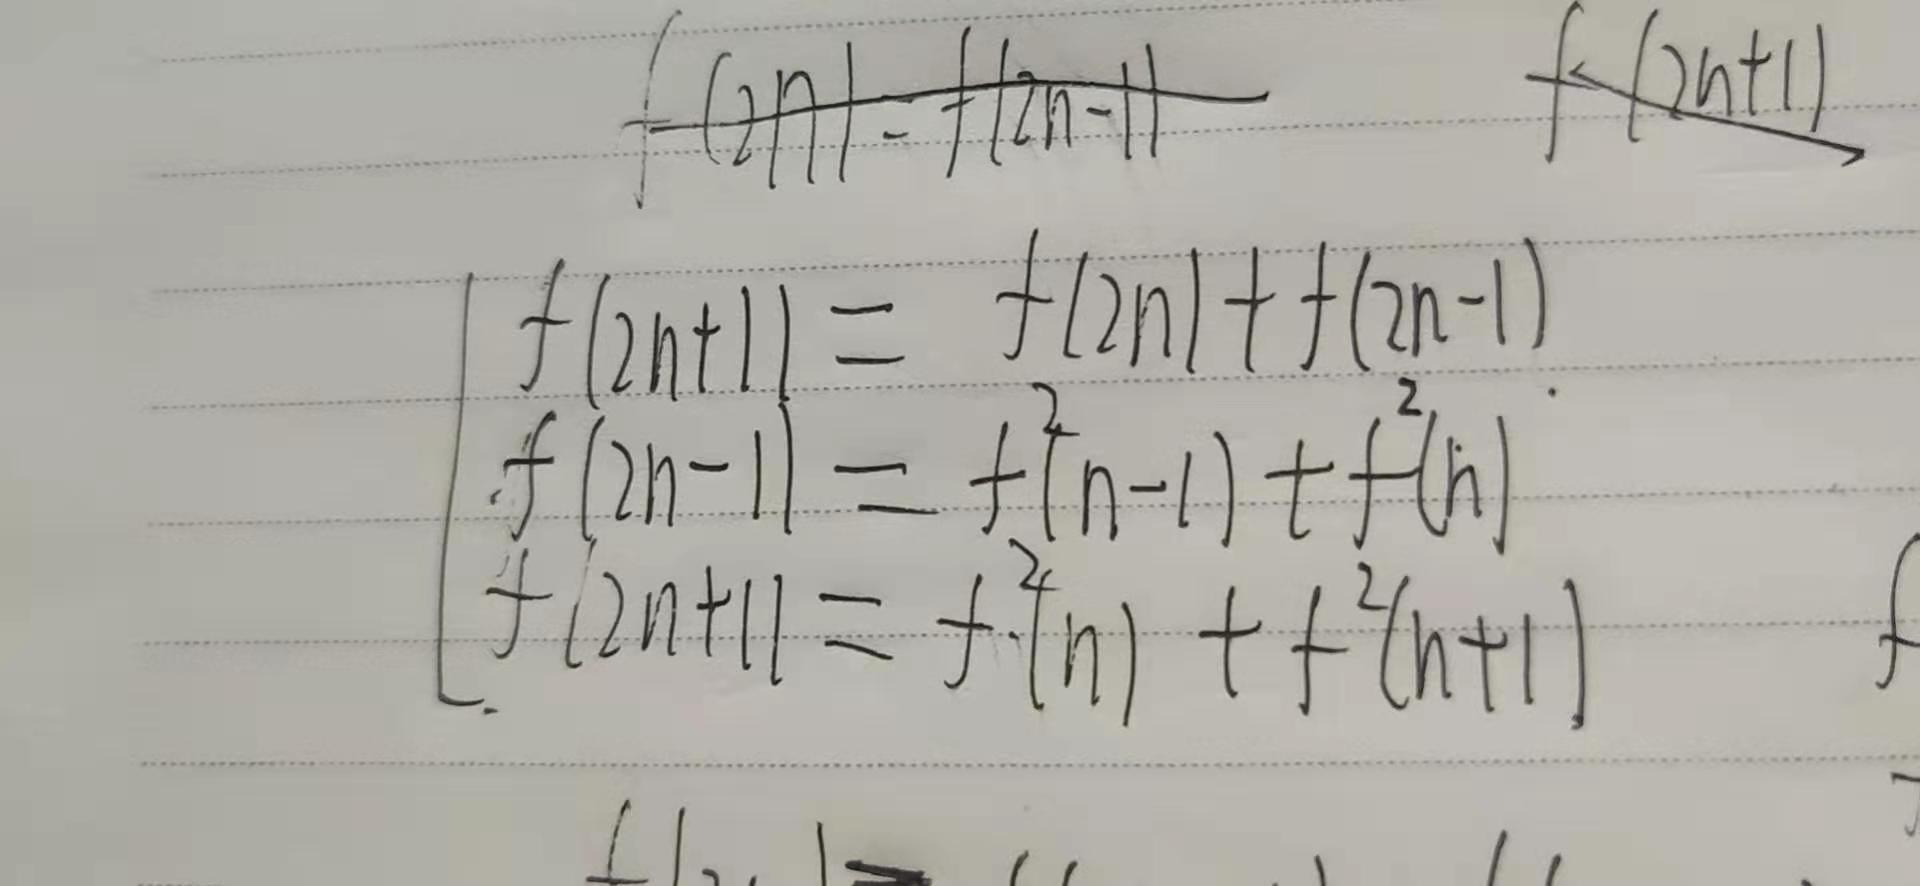 f(2n) = f(2n-1) f(2n+1)
f(2n+1) = f(2n) + f(2n-1)
f(2n-1) = f²(n-1) + f²(n)
f(2n+1) = f²(n) + f²(n+1)